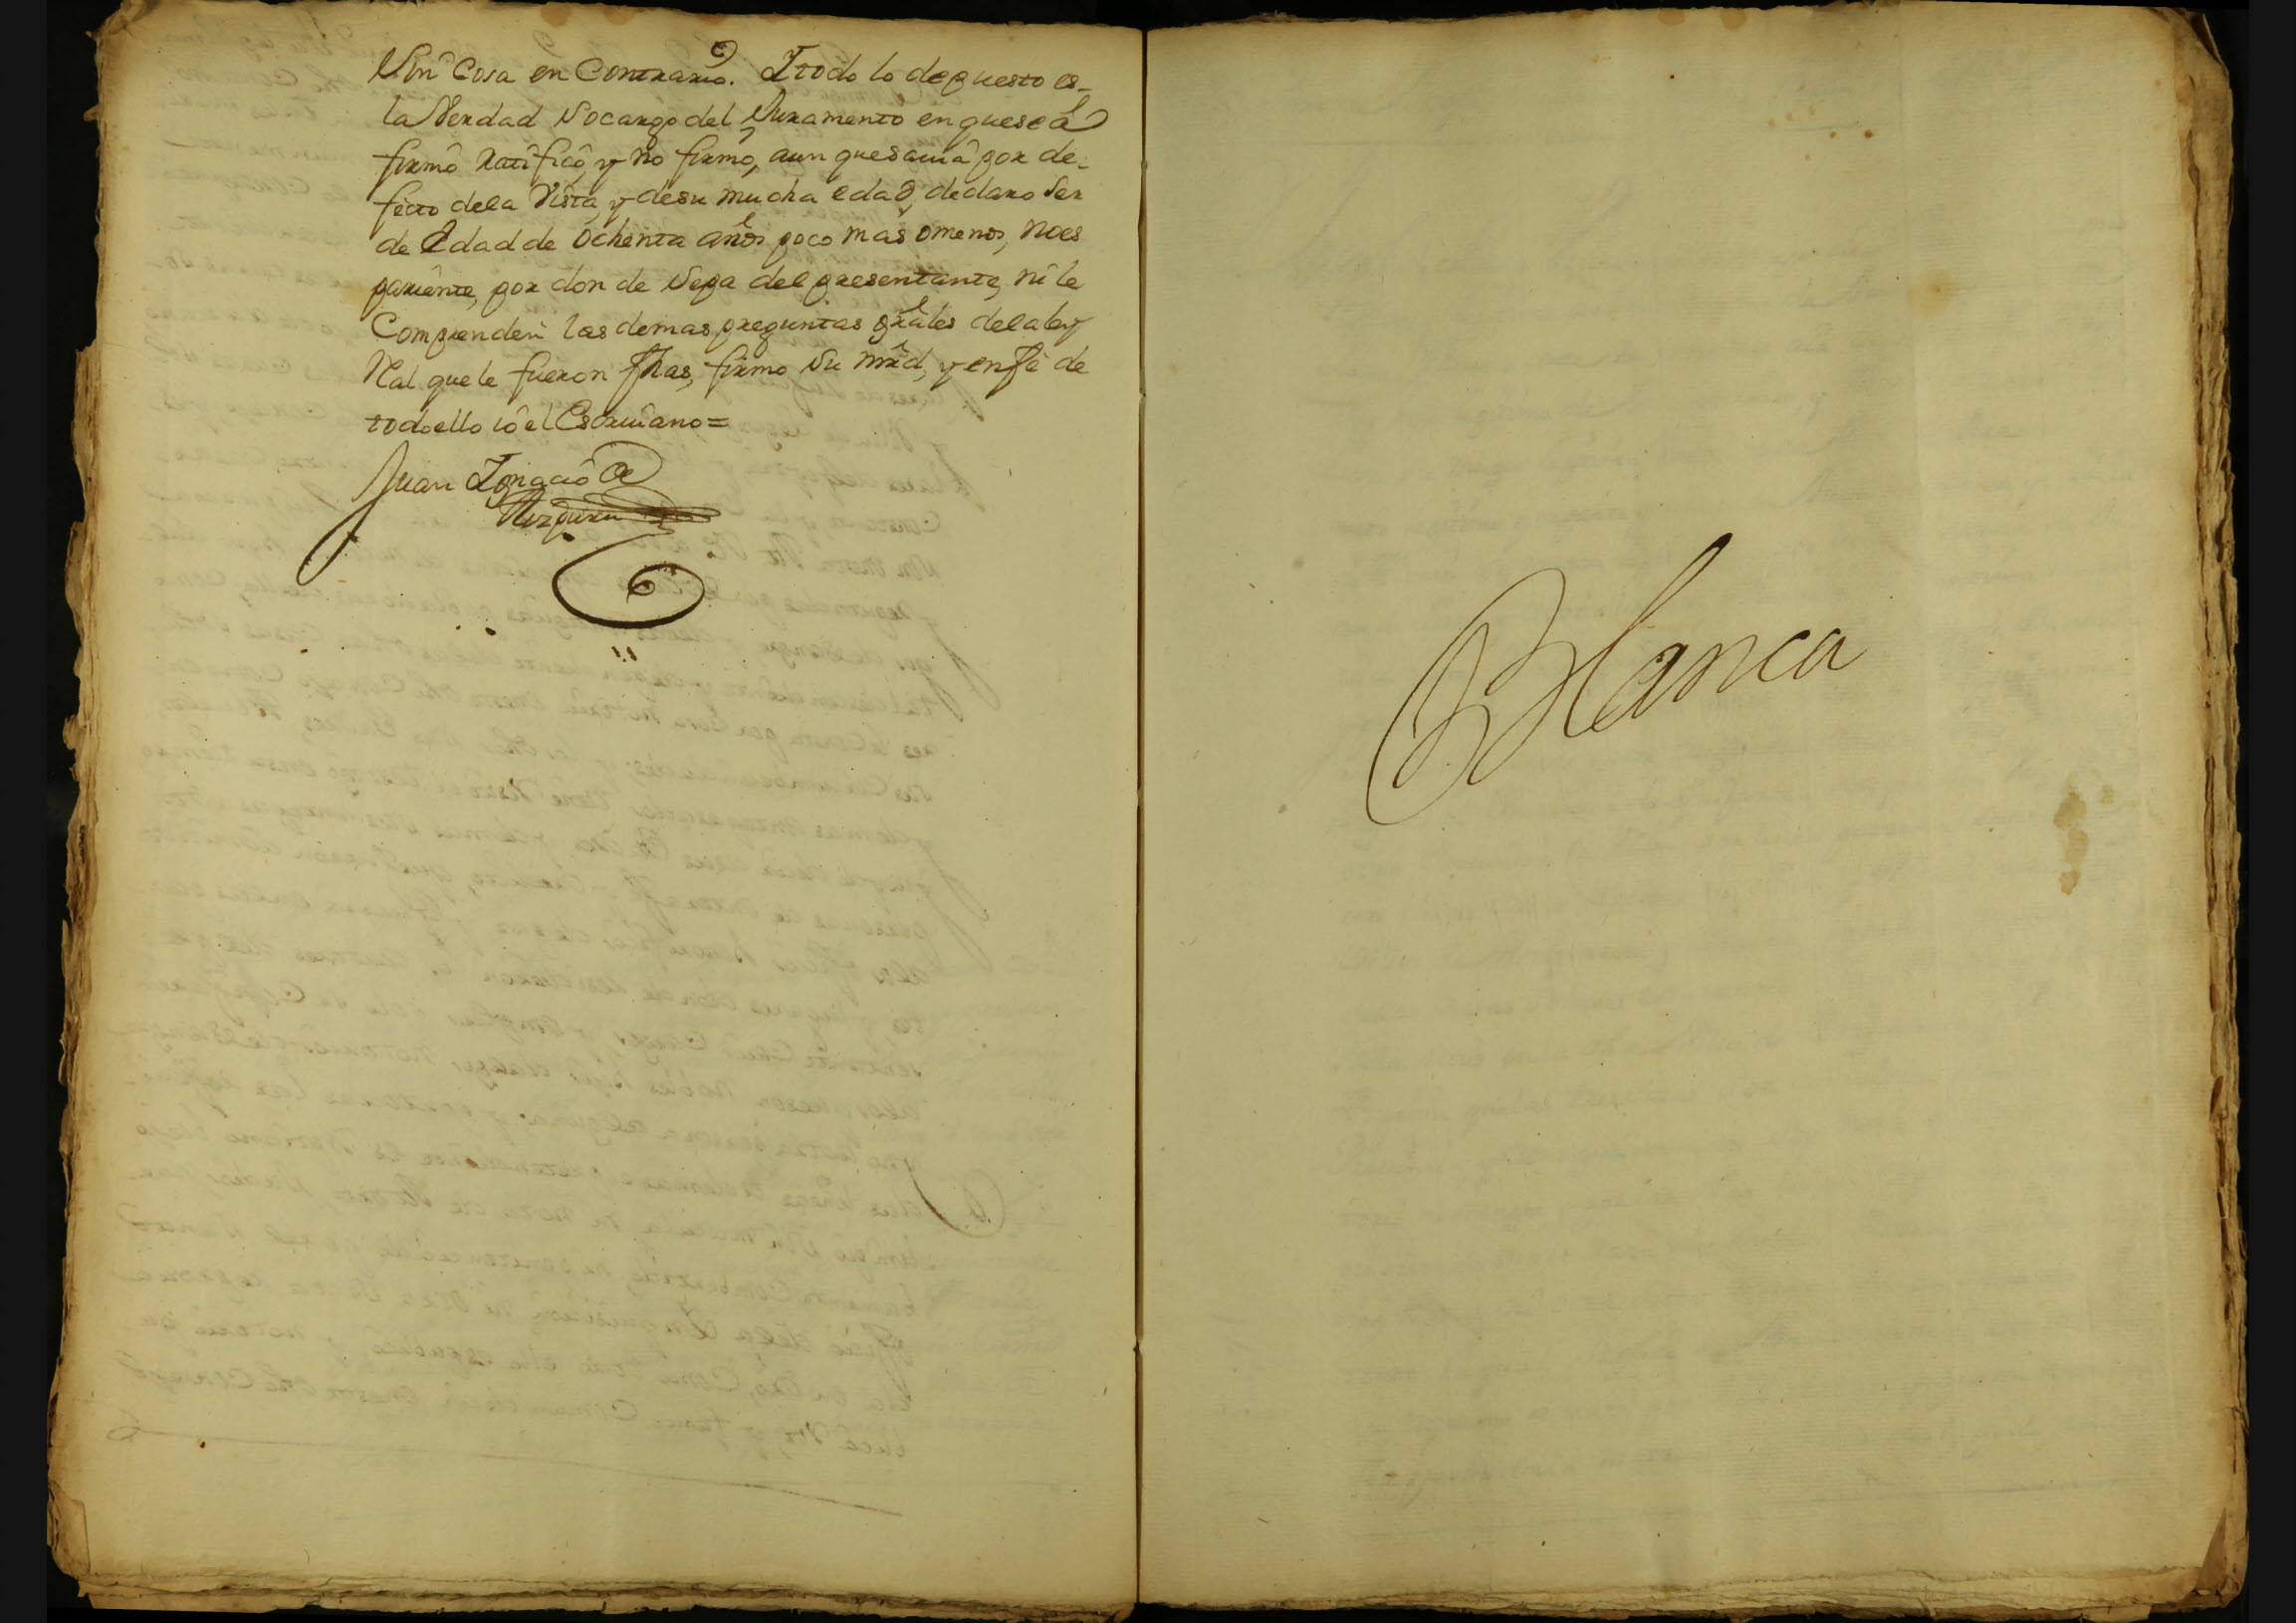 Sin Cosa en Contrario. Y todo lo depuesto es
la Verdad socargo del Juramento en que se á
firmô ratificô, y no firmô, aun que savia por de-
fecto de la Vista, y de su mucha edad, declaro ser
de Edad de ochenta años poco mas ô menos, no es
pariente, por donde sepa del presentante, ni le
Comprenden las demas preguntas grâles de la ley
Ral que le fueron fhas, firmo su mrd, y en fê de
todo ello iô el Escriuano=
Juan Ignaciô de
Blanca